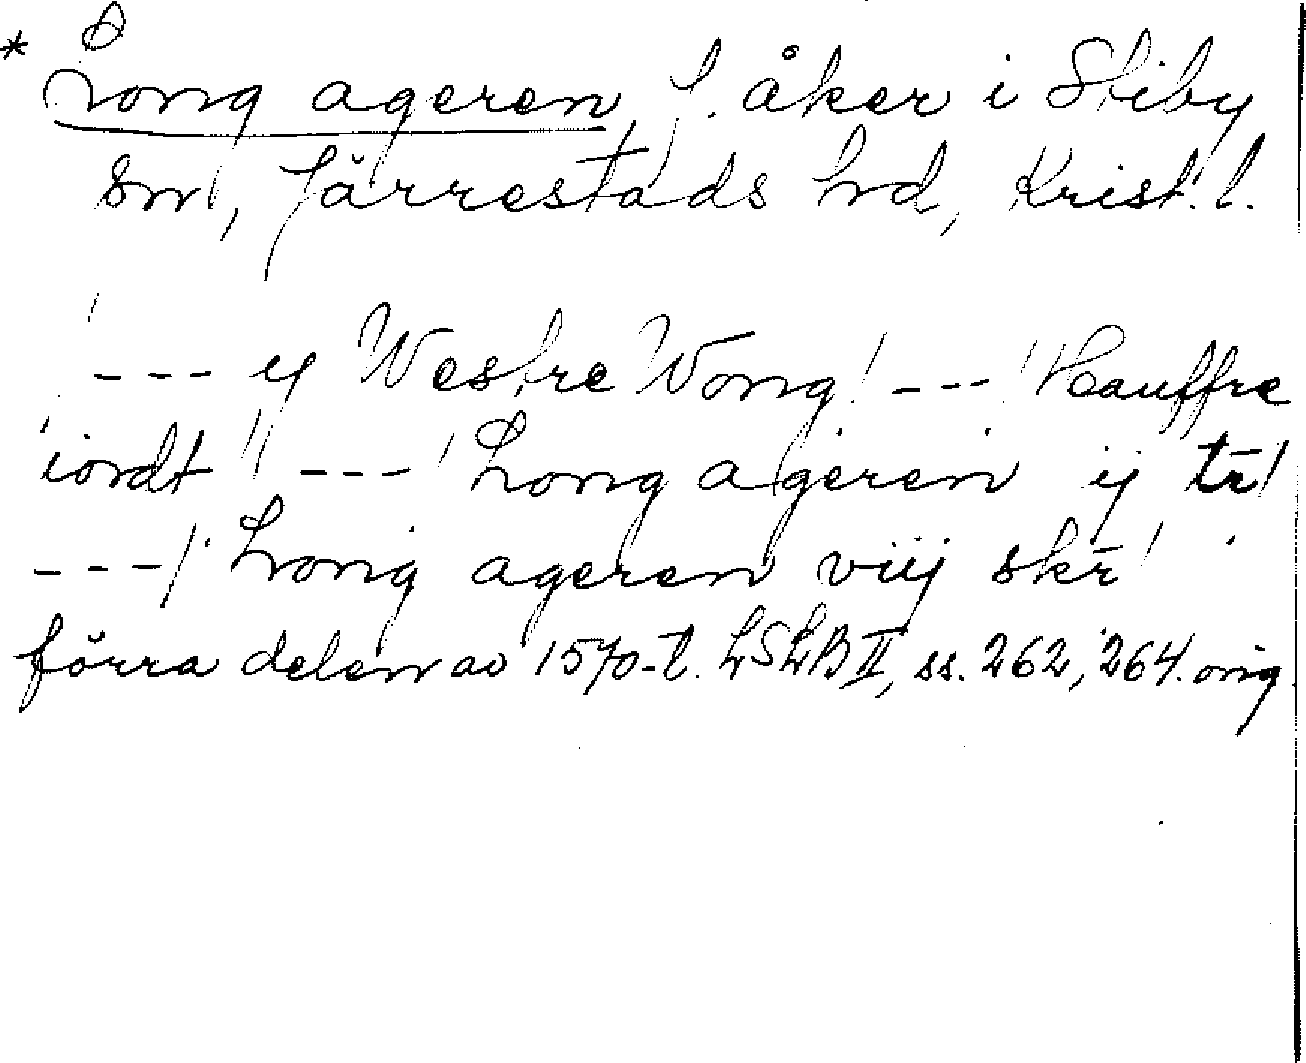 * Long ageren, f. åker i Stiby
sn, Järrestads hd, Krist. l.
--- y Westre Wong --- Hauffre
iordt --- Long ageren ij tr̄
--- Long ageren viij skr̄
förra delen av 1570-t. LSLB II, ss. 262, 264. orig.